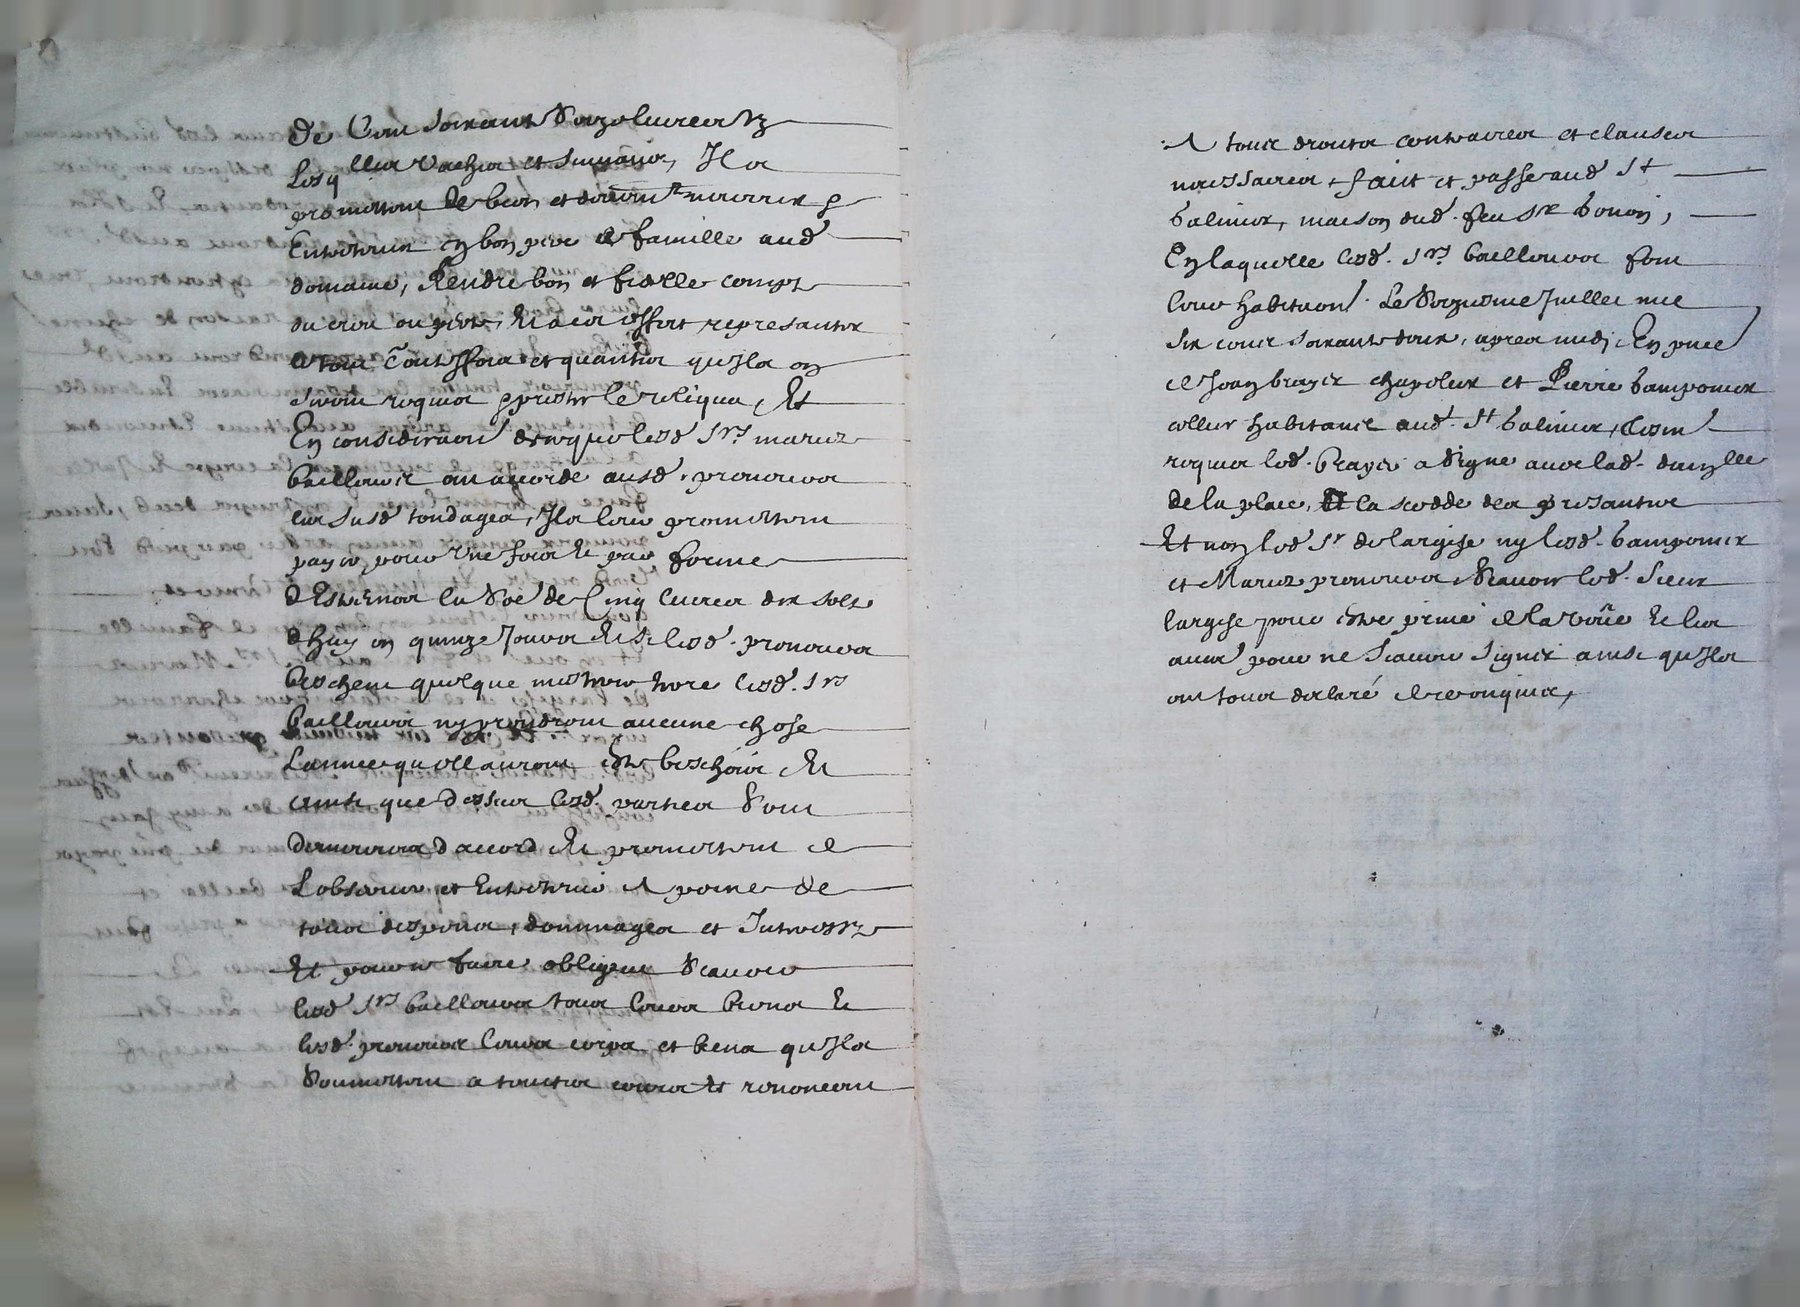 De Cent soixante Seize livres tz
Lesqlles vaches et suyvans, Ilz
promettent de bien et deument nourrir &
Entretenir en bon pere de famille aud
domaine, Rendre bon et fidelle compte
du croit ou perte, Et a ces effect representer
le tout touttesfois et quantes qu'Ilz en
seront requis & prester le reliqua, Et
En consideraon de ce que lesd Srs mariez
bailleurs ont accorde ausd. preneurs
les susd tondages, Ilz leur promettent
payer pour Une fois Et par forme
d'Estrenes la so͞e de Cinq livres dix solz
d'huy en quinze Jours Et si lesd. preneurs
beschent quelque mestaierie lesd. Srs
bailleurs ny prendront aucune chose
L'annee qu'elle auront Este beschees Et
ainsi que dessus lesd. parties Sont
demeurees d'accord Et promettent de
L'observer et Entretenir A peine de
tous despens, dommages et Interestz
Et pour ce faire obligent Scavoir
lesd Srs bailleurs tous leurs biens Et
lesd. preneurs leurs corps et biens qu'Ilz
Soumettent a touttes cours Et renoncent
A tous droits contraires et clauses
necessaires, faict et passe aud St
maison dud. feu Sr
En laquelle lesd. Srs bailleurs font
leur habitaon. Le Seiziesme Juillet mil
six cens soixante deux, apres midy, En pnce
de Jean brayer et Pierre
habitans aud. St tesm
requis led. brayer a signe avec lad. damzlle
de la place, Et la scedde des presantes
Et non led Sr de largese ny lesd.
et Mariez preneurs, Scavoir led. Sieur
largese pour estre privé de la veüe Et les
autres pour ne scavoir signer ainsi qu'Ilz
ont tous declaré de ce enquis,